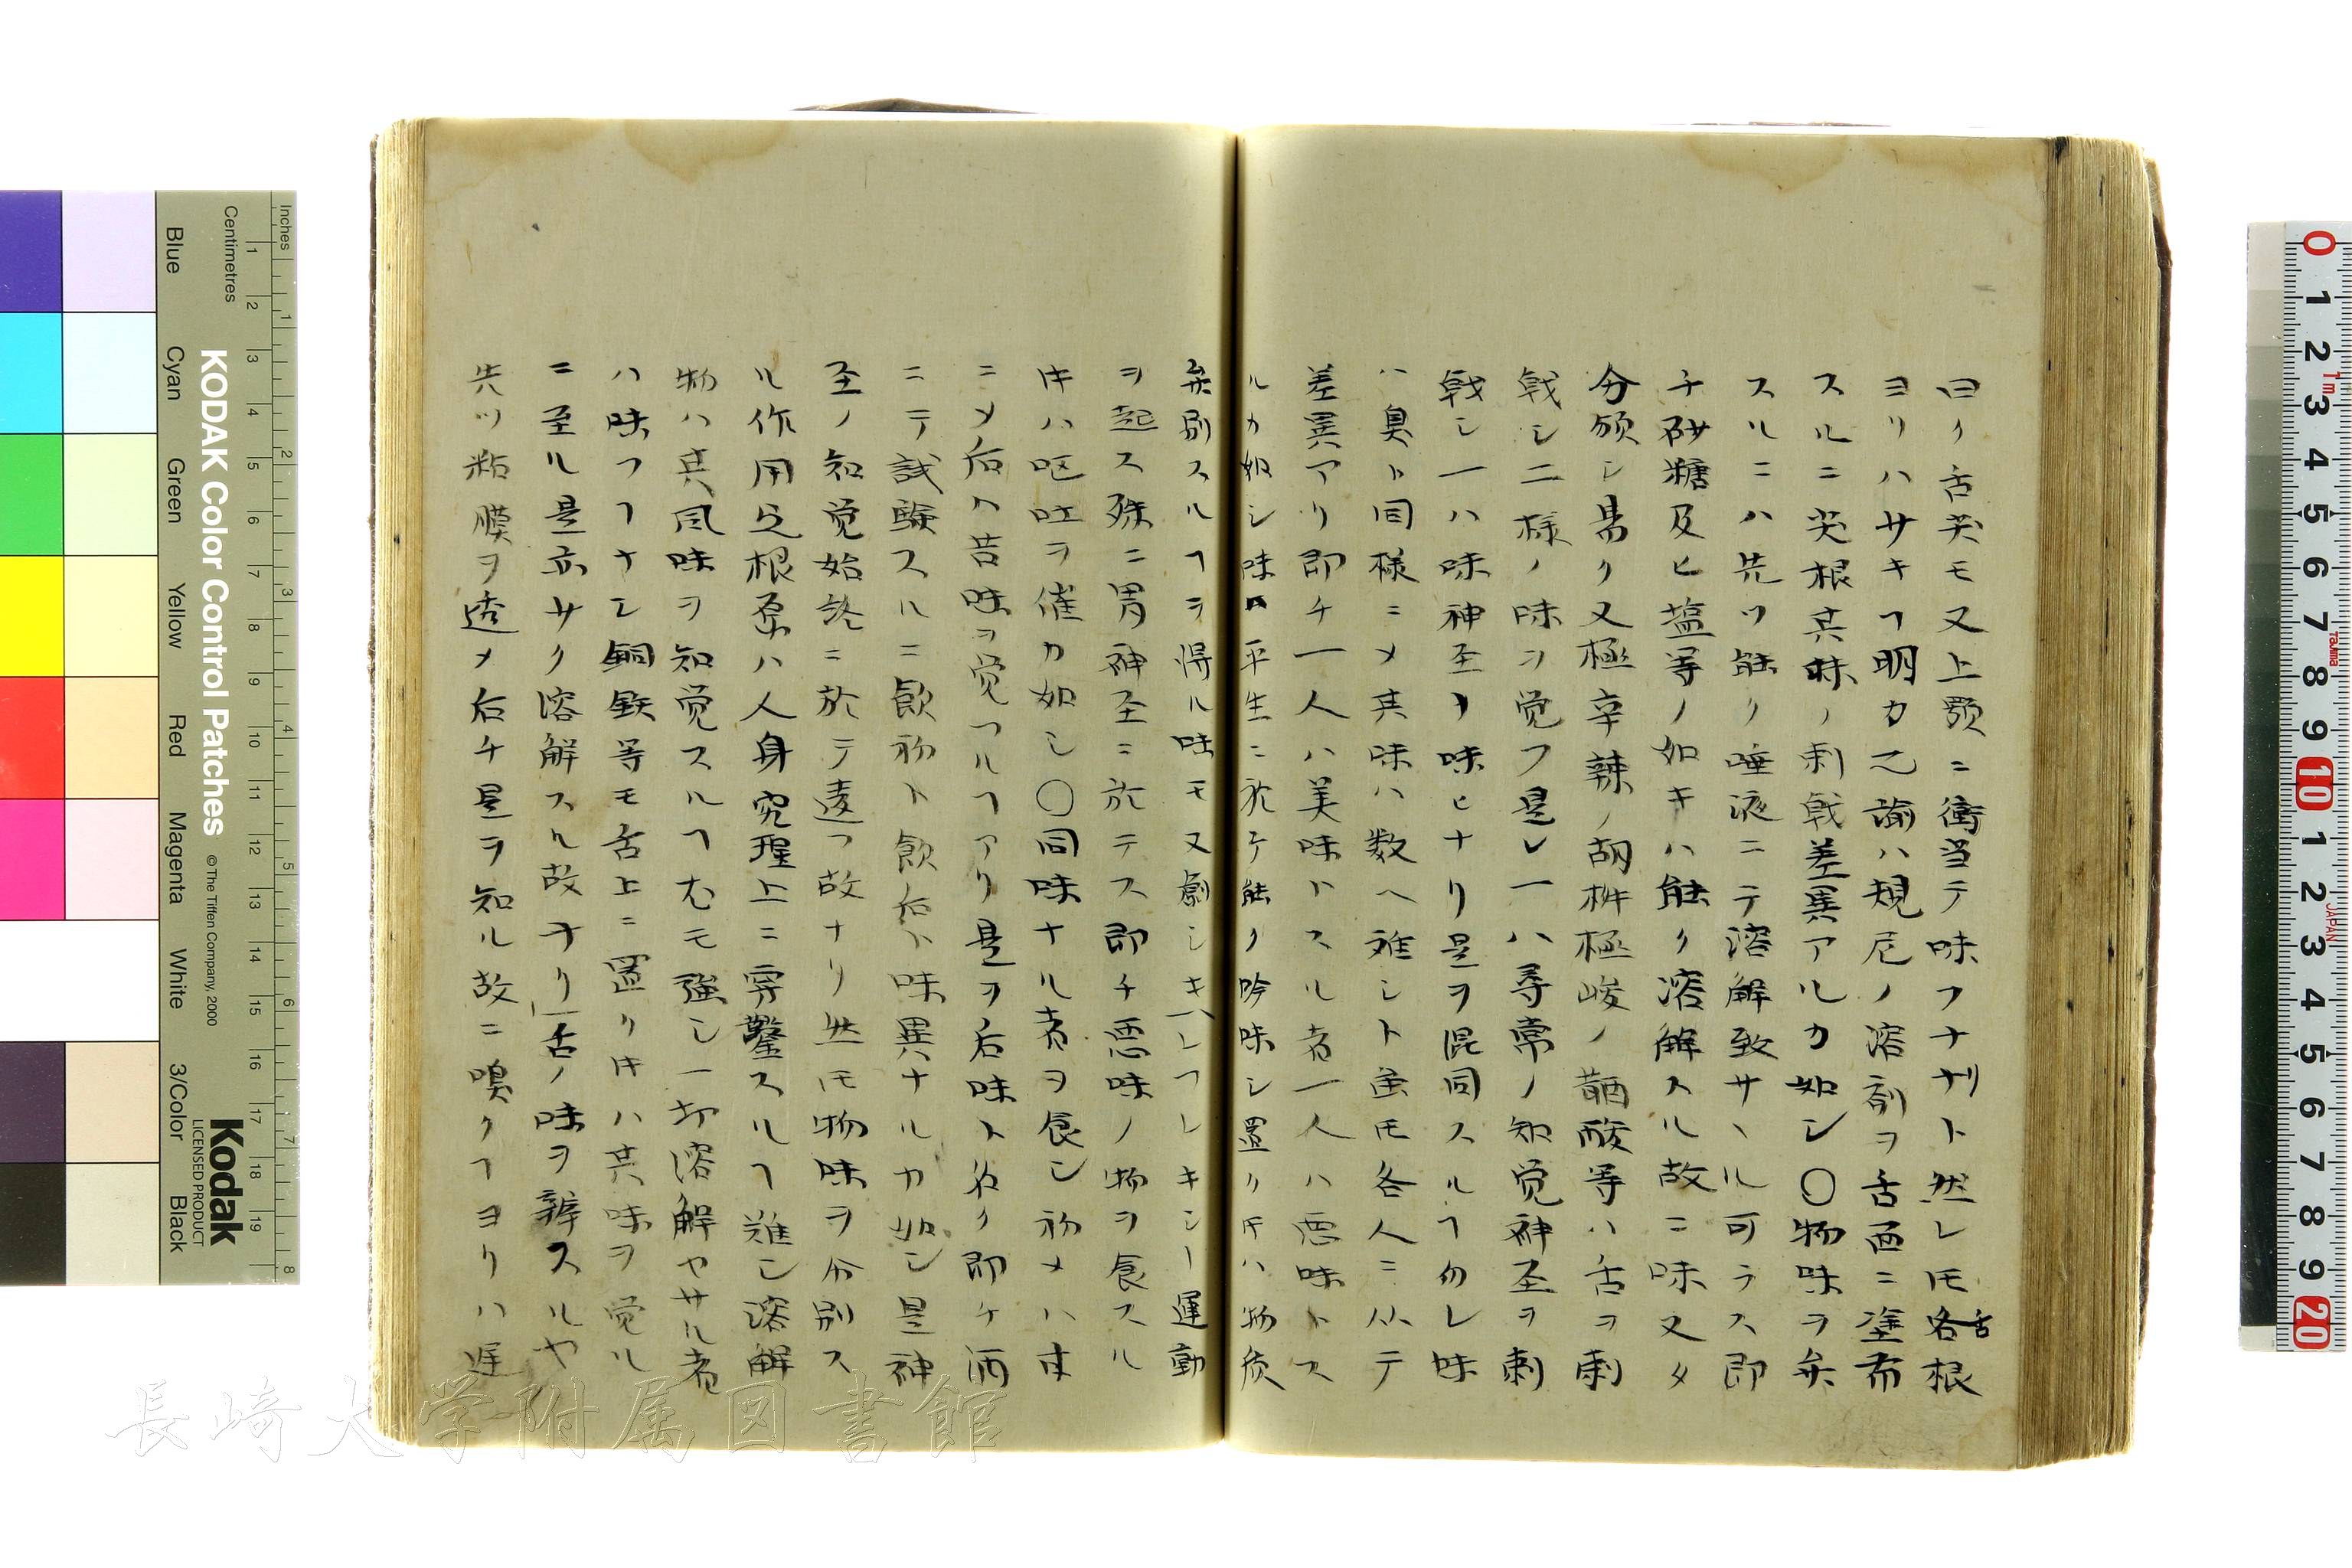 曰ク舌尖モ又上顎ニ衝当テ味フナリト然レ𪜈各舌根
ヨリハサキヿ明カ乙諭ハ規尼ノ溶剤ヲ舌面ニ塗布
スルニ尖根其味ノ刺戟差異アルカ如シ〇物味ヲ弁
スルニハ先ツ能ク唾液ニテ溶解致サヽル可ラス即
チ砂糖及ヒ塩等ノ如キハ能ク溶解スル故ニ味又タ
分頒シ易ク又極辛辣ノ胡椒極峻ノ醋酸等ハ舌ヲ刺
戟シ二様ノ味ヲ覚フ是レ一ハ尋常ノ知覚神圣ヲ刺
戟シ一ハ味神圣ヲ味ヒナリ是ヲ混同スルヿ勿レ味
ハ臭ト同様ニ〆其味ハ数ヘ難シト虽𪜈各人ニ从テ
差異アリ即チ一人ハ美味トスル者一人ハ悪味トス
ルカ如シ味ハ平生ニ於テ能ク吟味シ置ク𪜈ハ物質
弁別スルヿヲ得ル味モ又劇シキハレフレキシー運動
ヲ起ス殊ニ胃神圣ニ於テス即チ悪味ノ物ヲ食スル
𪜈ハ呕吐ヲ催カ如シ〇同味ナル者ヲ食シ初メハ甘
ニ〆后ハ苦味ヲ覚フルヿアリ是ヲ后味ト名ク即ケ酒
ニテ試験スルニ飲初ト飲后ト味異ナルカ如シ是神
圣ノ知覚始終ニ於テ違フ故ナリ然𪜈物味ヲ分別ス
ル作用之根原ハ人身究理上ニ穿鑿スルヿ難シ溶解
物ハ其風味ヲ知覚スルヿ尤モ強シ一切溶解セサル者
ハ味フヿナシ銅鉄等モ舌上ニ置ク𪜈ハ其味ヲ覚ル
ニ至ル是亦サク溶解スル故ヲリ舌ノ味ヲ辨スルヤ
先ツ粘膜ヲ透〆后チ是ヲ知ル故ニ嗅クヿヨリハ遅
Inches
Centimetres
KODAK Color Control Patches
© The Tiffen Company, 2000
Kodak
LICENSED PRODUCT
Blue
Cyan
Green
Yellow
Red
Magenta
White
3/Color
Black
長崎大学附属図書館